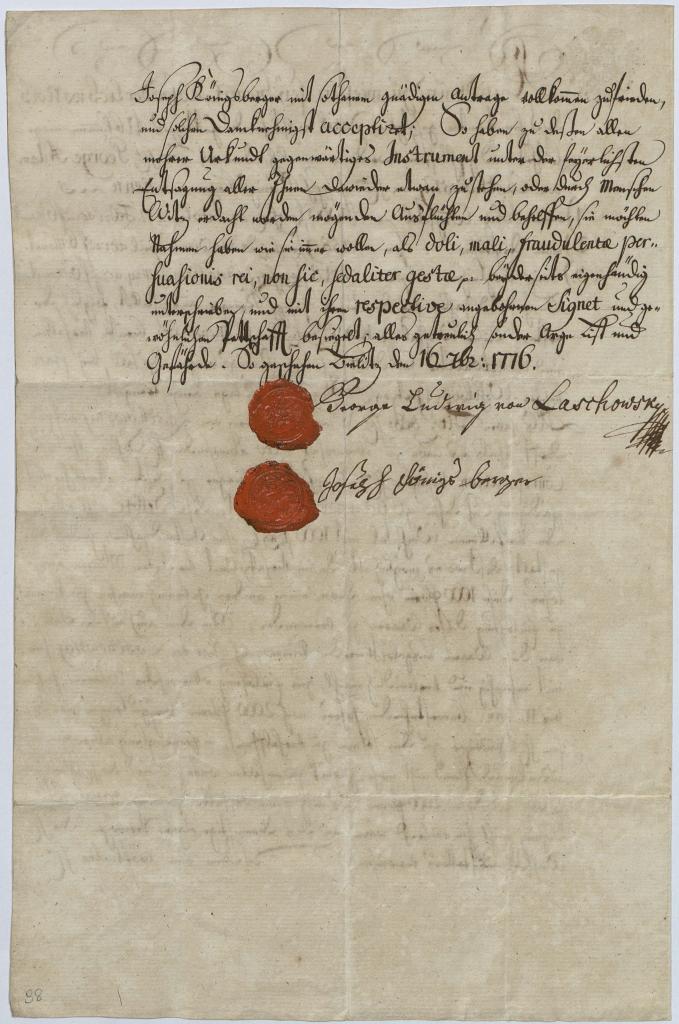 Joseph Königsberger mit sothanem gnädigen Antrage vollkommen zufrieden,
und solchen Danknehmigst acceptiret; So haben zu deßen allen
mehrer Urkundt gegenwärtiges Instrument unter der feyerlichsten
Entsagung aller Ihnen dawieder etwan zustehen, oder durch Menschen
Witz erdacht werden mögenden Ausflüchten und behelffen, sie möchten
Nahmen haben wie sie immer wollen, als doli, mali, fraudulentæ per-
suasionis rei, non sic, sed aliter gestæ, beyderseits eigenhändig
unterschrieben, und mit ihrem respective angebohrnen Signet und ge-
wöhnlichen Pettschafft besiegelt; alles getreulich sonder Arge List und
Gefährde. So geschehen Bielitz den 16 7br: 1776.
George Ludwig von Laschowsky
Joseph Königsberger
98